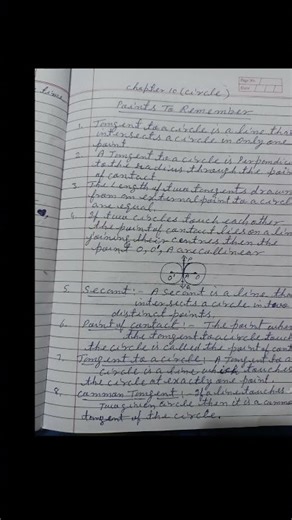 time
Page No.
Date
Chapter 10 (circle)
Points To Remember
1. Tangent to a circle is a line that
intersects a circle in only one
point
2. A Tangent to a circle is perpendicu
to the radius through the poin
of contact.
3. The length of two tangents drawn
from an external point to a circl
are equal
4. If two circles touch each other
the point of contact lies on a lin
joining their centres then the
point O, O', A are collinear
5. Secant :- A secant is a line tha
intersects a circle in two
distinct points.
6. Point of contact :- The point wher
the tangent to a circle touch
the circle is called the point of cont
7. Tangent to a circle : A Tangent to a
circle is a line which touches
the circle at exactly one point.
8. Comman Tangent :- If a line touches
two given circle then it is a comm
tangent of the circle.